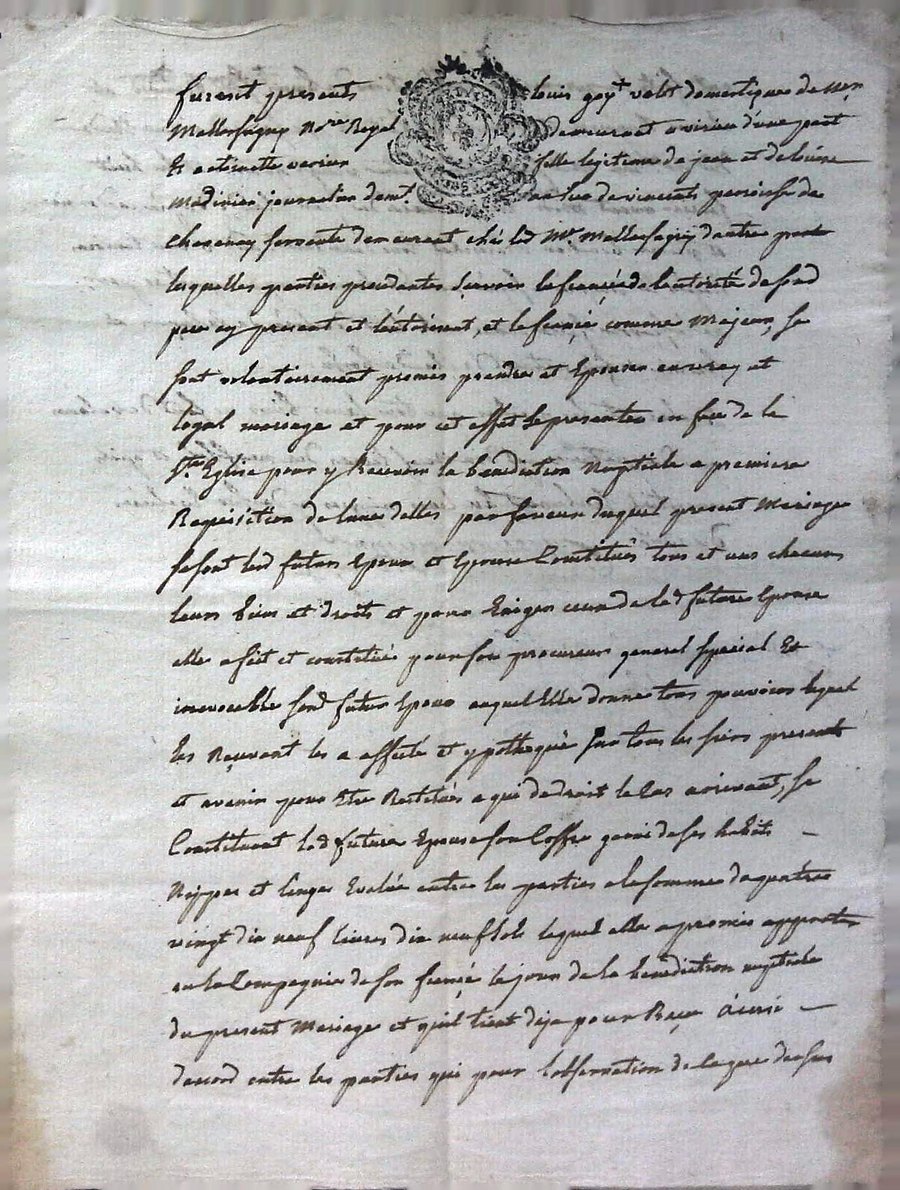 furent presents louis goyt valet domestiques de Mr
Mallerfaguy Nore Royal demeurant a virieu d'une part
Et antoinette varvier fille lejitime de jean et de
Madinier journalier demt au lieu de vincent parroisse de
Chassenay servente demeurant ché led Mr. Mallerfaguy dautre part
lesquelles parties procedantes sçavoir la fiancée de lautorité de sond
pere cy present et lautorisant, et le fiancé comme Majeur, se
sont volontairement promis prendre et Epouser en vray et
legal mariage et pour cet effet se presenter en face de la
Ste Eglise pour y Recevoir la benediction Nuptiale a premiere
Requisition de lune delles par faveur duquel present Mariage
se sont lesd futurs Epoux et Epouse Constitués tous et uns chacuns
leurs biens et droits et pour Exiger ceux de lad future Epouse
elle a fait et constitué pour son procureur general special Et
irrevocable sond futur Epoux auquel Elle donne tous pouvoirs lequel
Les Reçevant les a affecté et ypothequé sur tous les siens presents
et avenir pour Etre Restitués a qui de droit le Cas arrivant, se
Constituant lad future Epouse son Coffre garni de ses habits –
Nippes et linges Evalué entre les parties a la somme de quatre
vingt dix neuf livres dix neuf sols lequel elle a promis apporter
en la Compagnie de son fiancé le jour de la benediction nuptiale
du present Mariage et quil tient deja pour Reçu Ainsi –
dacord entre les parties qui pour lobservation de ce que dessus